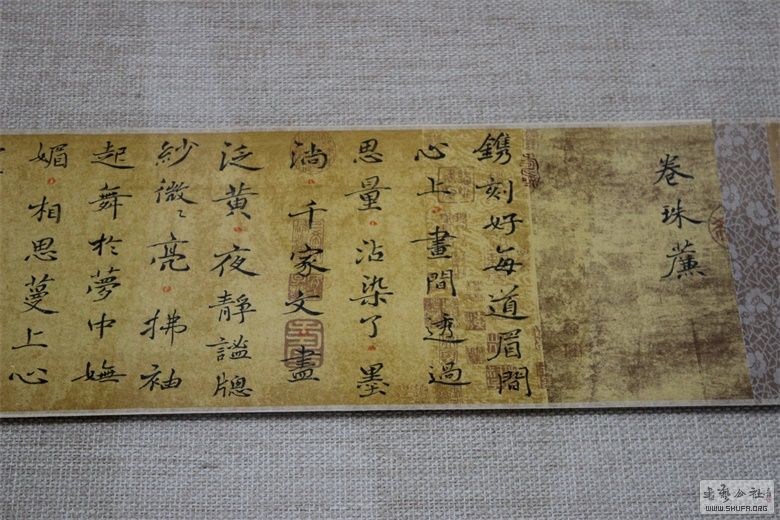 卷珠簾
鎸刻好每道眉間
心上。畫間透過
思量。沾染了墨
淌。千家文盡
泛黃。夜靜謐牕
紗微〻亮。拂袖
起舞於夢中嫵
媚。相思蔓上心
书艺公社
WWW.SHUFA.ORG